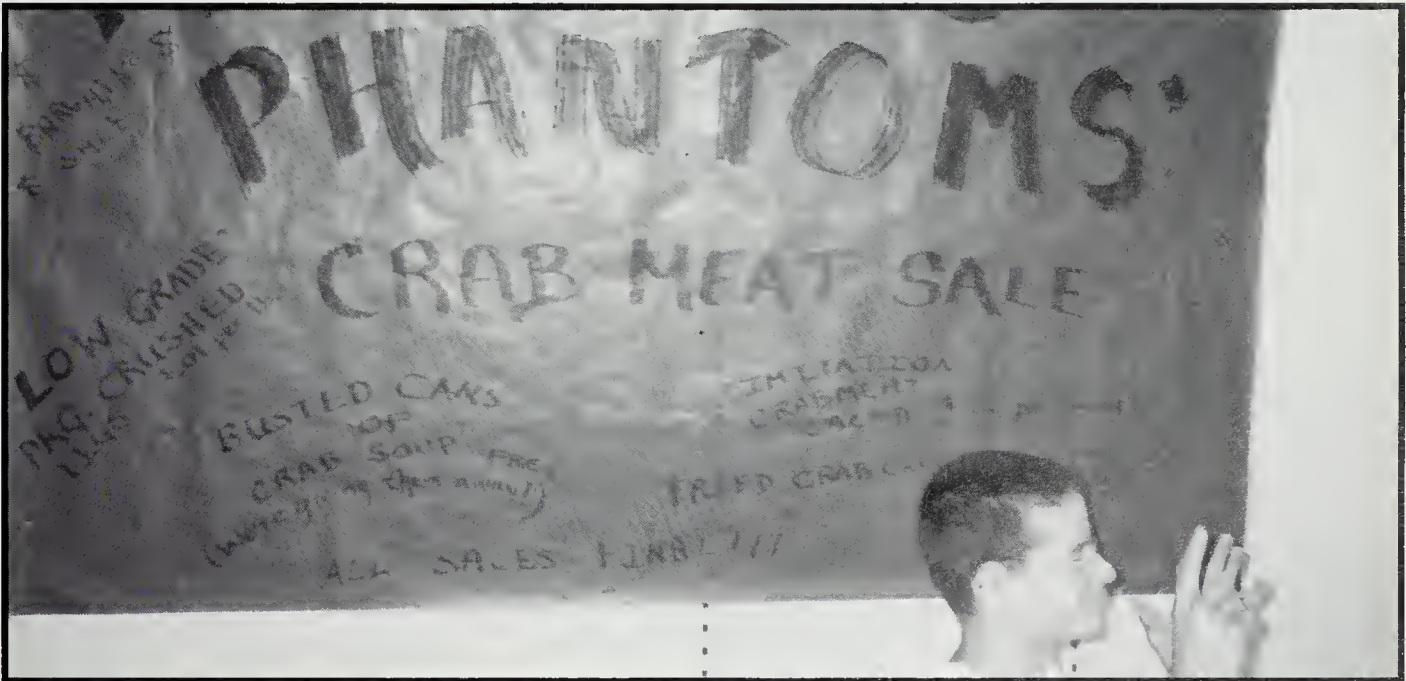 PHANTOMS'
CRAB MEAT SALE
LOW GRADE
PKG. CRUSHED
BUSTED CANS
OF
CRAB SOUP FREE
(we're giving them away!!)
IMITATION
CRABMEAT
FRIED CRAB
ALL SALES FINAL!!!